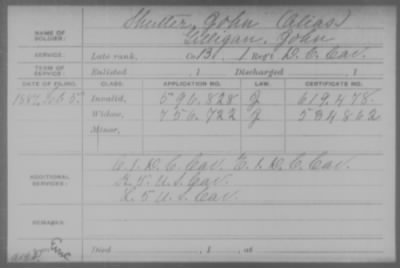 NAME OF SOLDIER: Shutter, John (Alias)
Gilligan, John
SERVICE: Late rank, Co. B, 1 Reg't D.C. Cav.
TERM OF SERVICE: Enlisted , 1 Discharged , 1
DATE OF FILING. CLASS. APPLICATION NO. LAW. CERTIFICATE NO.
1887, Feb 5. Invalid, 596.828 J 619.478.
Widow, 756.722 J 534862
Minor,
ADDITIONAL SERVICES: C.1.D.C. Cav. E.1.D.C. Cav
K.5 U.S. Cav.
K.5 U.S. Cav
REMARKS:
Died , 1 , at